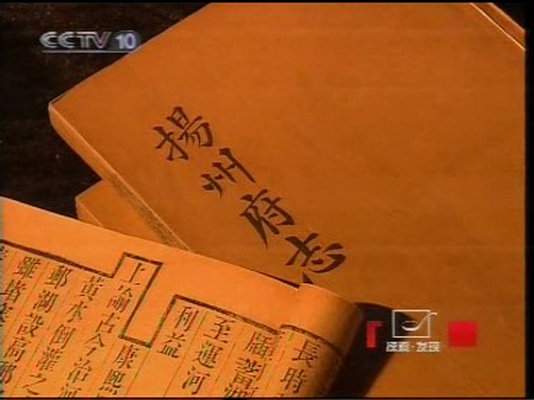 CCTV 10
揚州府志
長時
至運河
利益
康熙
上諭古今治河
黄水倒灌之
郵湖設高郵
雖堵
探索·发现